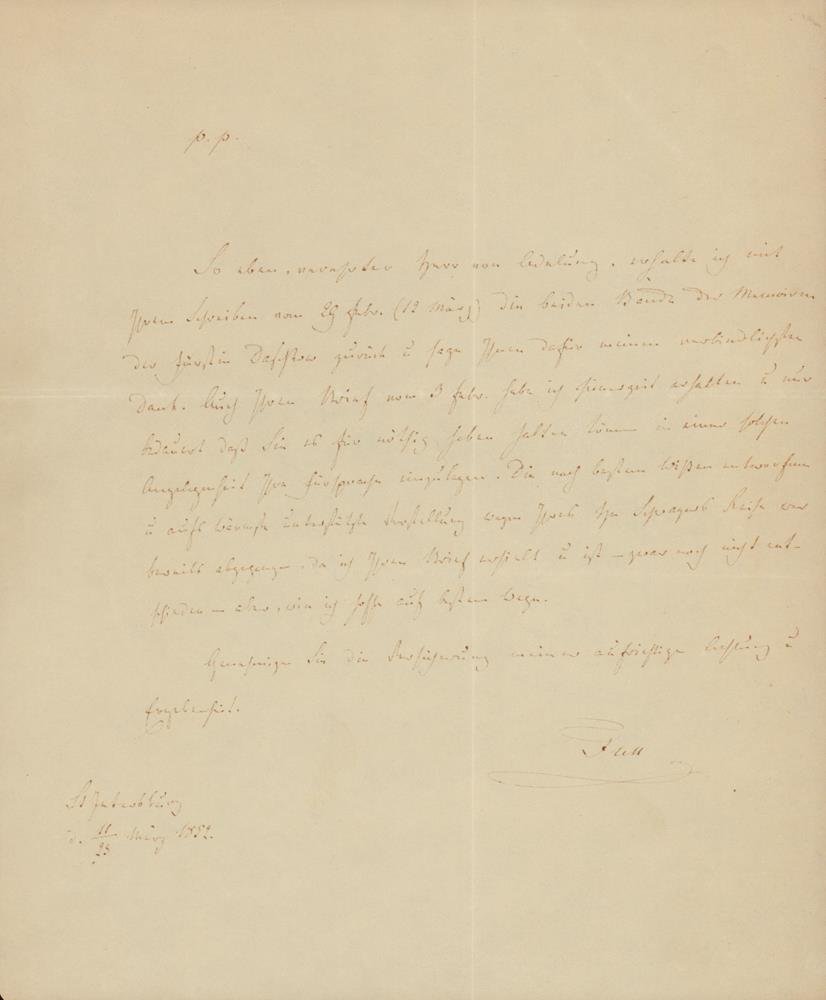 p. p.
So eben, verehrter Herr von Adelung, erhalte ich mit
Ihrem Schreiben vom 29 Febr. (12 März) die beiden Bände der Memoiren
der Fürstin Daschkow zurück u sage Ihnen dafür meinen verbindlichsten
Dank. Auch Ihren Brief vom 3 Febr. habe ich seinerzeit erhalten u nur
bedauert daß Sie es für nöthig haben halten können in einer solchen
Angelegenheit Ihre Fürsprache einzulegen. Die nach bestem Wißen entworfene
u aufs wärmste unterstützte Vorstellung wegen Ihres Hn Schwagers Reise war
bereits abgegangen, da ich Ihren Brief erhielt u ist – zwar noch nicht ent-
schieden – aber, wie ich hoffe auf bestem Wege.
Genehmigen Sie die Versicherung meiner aufrichtigen Achtung u
Ergebenheit.
St Petersburg
d. 11/23 März 1852.